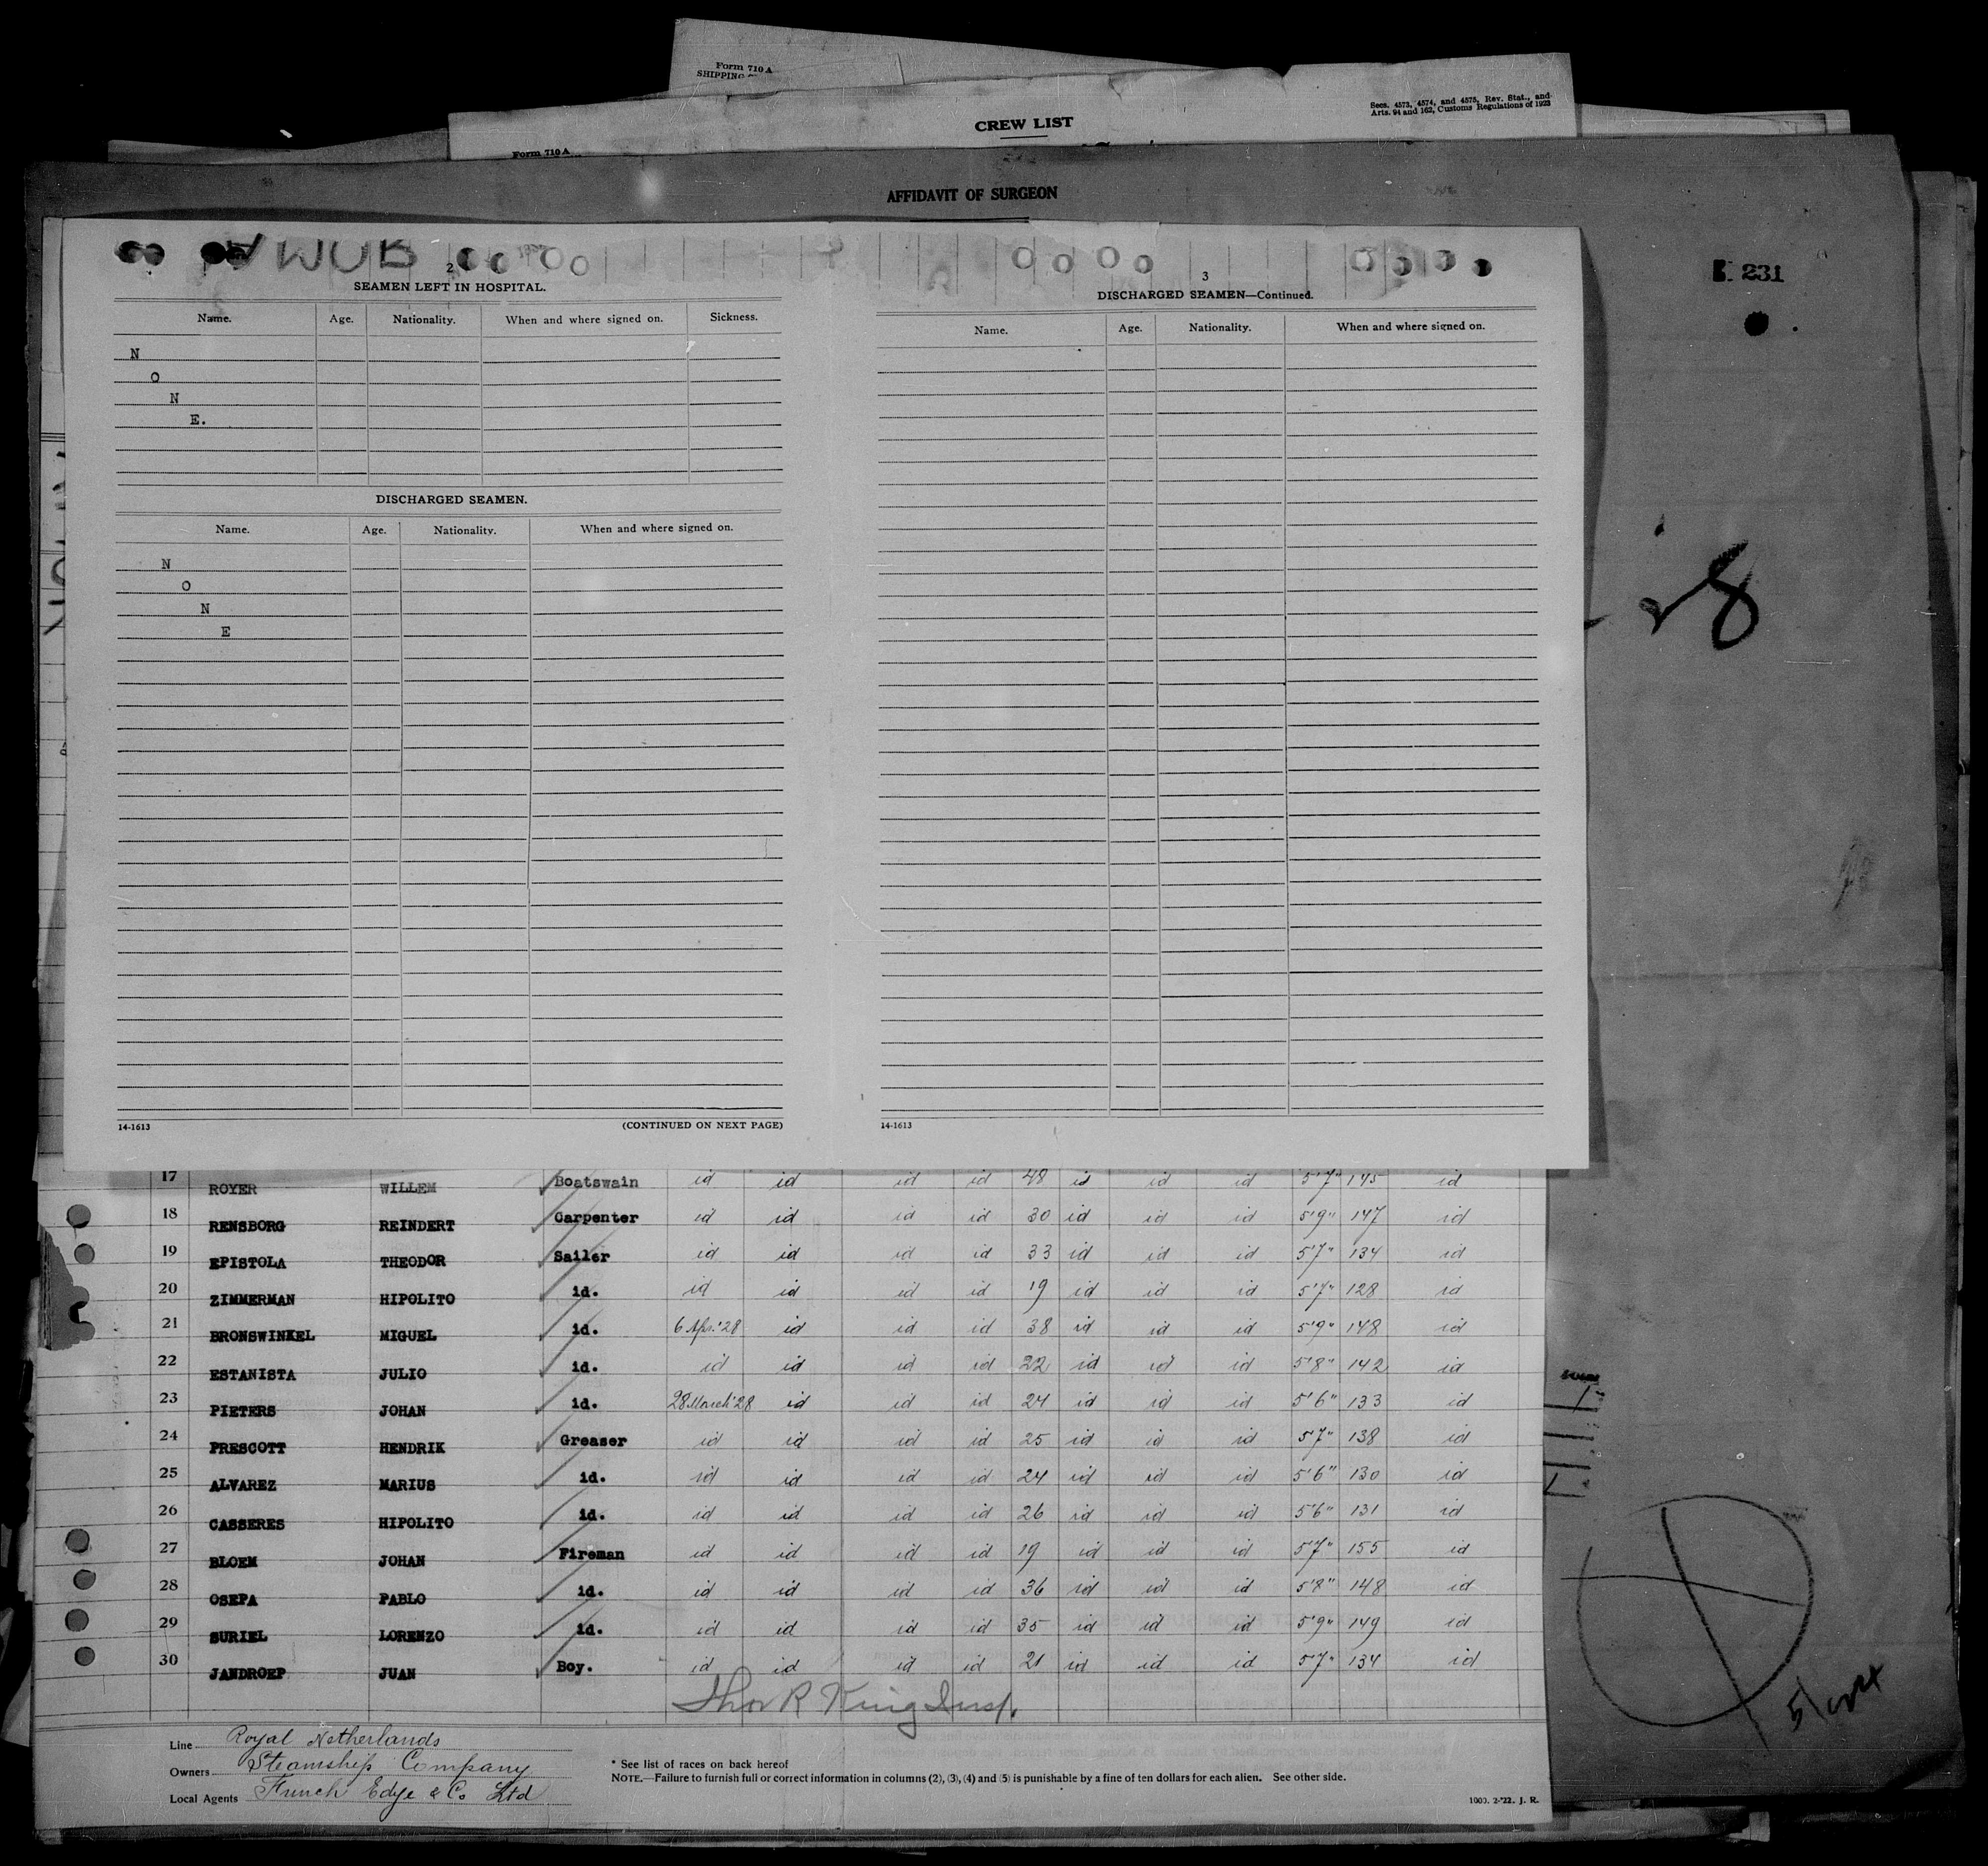 Form 710 A
SHIPPING
Secs. 4573, 4574, and 4575, Rev. Stat., and
Arts. 94 and 162, Customs Regulations of 1923
CREW LIST
Form 710 A
AFFIDAVIT OF SURGEON
231
2
SEAMEN LEFT IN HOSPITAL.
Name. Age. Nationality. When and where signed on. Sickness.
N
O
N
E.
DISCHARGED SEAMEN.
Name. Age. Nationality. When and where signed on.
N
O
N
E
14-1613 (CONTINUED ON NEXT PAGE)
3
DISCHARGED SEAMEN—Continued.
Name. Age. Nationality. When and where signed on.
14-1613
17 ROYER WILLEM Boatswain id id id id 48 id id id 5'7" 145 id
18 RENSBORG REINDERT Carpenter id id id id 30 id id id 5'9" 147 id
19 EPISTOLA THEODOR Sailer id id id id 33 id id id 5'7" 134 id
20 ZIMMERMAN HIPOLITO id. id id id id 19 id id id 5'7" 128 id
21 BRONSWINKEL MIGUEL id. 6 Apr.'28 id id id 38 id id id 5'9" 148 id
22 ESTANISTA JULIO id. id id id id 22 id id id 5'8" 142 id
23 PIETERS JOHAN id. 28 March'28 id id id 24 id id id 5'6" 133 id
24 PRESCOTT HENDRIK Greaser id id id id 25 id id id 5'7" 138 id
25 ALVAREZ MARIUS id. id id id id 24 id id id 5'6" 130 id
26 CASSERES HIPOLITO id. id id id id 26 id id id 5'6" 131 id
27 BLOEM JOHAN Fireman id id id id 19 id id id 5'7" 155 id
28 OSEPA PABLO id. id id id id 36 id id id 5'8" 148 id
29 SURIEL LORENZO id. id id id id 35 id id id 5'9" 149 id
30 JANDROEP JUAN Boy. id id id id 21 id id id 5'7" 134 id
Thos R King Insp.
Line Royal Netherlands
Owners Steamship Company
Local Agents Funch Edye & Co Ltd
* See list of races on back hereof
NOTE.—Failure to furnish full or correct information in columns (2), (3), (4) and (5) is punishable by a fine of ten dollars for each alien. See other side.
1000. 2-'22. J. R.